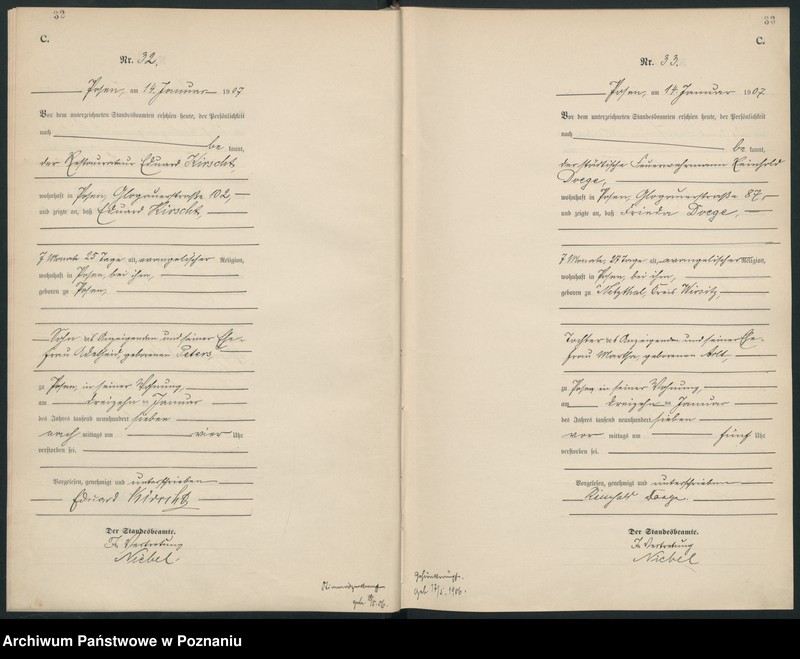 32
C.
Nr. 32.
Posen, am 14. Januar 1907
Vor dem unterzeichneten Standesbeamten erschien heute, der Persönlichkeit
nach
be kannt,
der Restaurateur Eduard Kirscht,
wohnhaft in Posen, Glogauerstraße 102,
und zeigte an, daß Eduard Kirscht,
7 Monate 25 Tage alt, evangelischer Religion,
wohnhaft in Posen, bei ihm,
geboren zu Posen,
Sohn des Anzeigenden und seiner Ehe-
frau Adelheid, geborenen Peters,
zu Posen, in seiner Wohnung,
am dreizehnten Januar
des Jahres tausend neunhundert sieben
nach mittags um vier Uhr
verstorben sei.
Vorgelesen, genehmigt und unterschrieben
Eduard Kirscht
Der Standesbeamte.
In Vertretung
Niebel
33
C.
Nr. 33.
Posen, am 14. Januar 1907
Vor dem unterzeichneten Standesbeamten erschien heute, der Persönlichkeit
nach
be kannt,
der städtische Feuerwehrmann Reinhold
Doege,
wohnhaft in Posen, Glogauerstraße 87,
und zeigte an, daß Frieda Doege,
7 Monate, 27 Tage alt, evangelischer Religion,
wohnhaft in Posen, bei ihm,
geboren zu Netzthal, Kreis Wirsitz,
Tochter des Anzeigenden und seiner Ehe-
frau Martha, geborenen Arlt,
zu Posen in seiner Wohnung,
am dreizehnten Januar
des Jahres tausend neunhundert sieben
vor mittags um fünf Uhr
verstorben sei.
Vorgelesen, genehmigt und unterschrieben
Reinhold Doege.
Der Standesbeamte.
In Vertretung
Niebel
Gehirnkrämpf.
geb. 17/5. 1906.
Archiwum Państwowe w Poznaniu